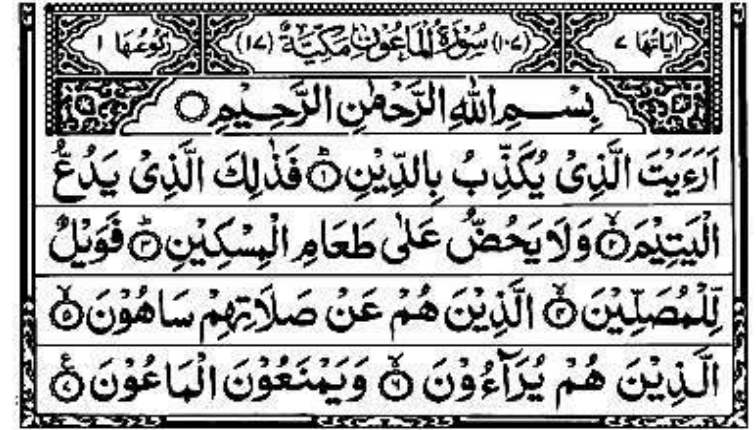 اٰيَاتُهَا ٧ (١٠٧) سُوْرَةُ الْمَاعُوْنِ مَكِّيَّةٌ (١٧) رُكُوْعُهَا ١
بِسْمِ اللّٰهِ الرَّحْمٰنِ الرَّحِيْمِ ○
اَرَءَيْتَ الَّذِىْ يُكَذِّبُ بِالدِّيْنِ ؕ﴿١﴾ فَذٰلِكَ الَّذِىْ يَدُعُّ
الْيَتِيْمَ ۙ﴿٢﴾ وَلَا يَحُضُّ عَلٰى طَعَامِ الْمِسْكِيْنِ ؕ﴿٣﴾ فَوَيْلٌ
لِّلْمُصَلِّيْنَ ۙ﴿٤﴾ الَّذِيْنَ هُمْ عَنْ صَلَاتِهِمْ سَاهُوْنَ ۙ﴿٥﴾
الَّذِيْنَ هُمْ يُرَآءُوْنَ ۙ﴿٦﴾ وَيَمْنَعُوْنَ الْمَاعُوْنَ ﴿٧﴾ ع